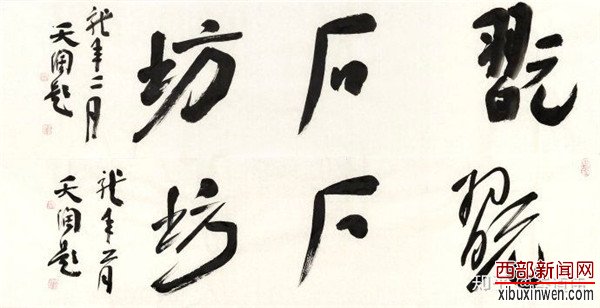 翫石坊
龍年二月
天題
翫石坊
龍年二月
天題
知
西部新闻网
xibuxinwen.com